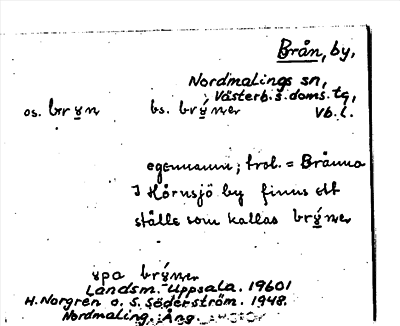 Brån, by,
Nordmalings sn,
Västerb. s. doms. tg,
os. brɤn bs. brɤ́ner Vb. l.
egennamn; trol. = Brånna
I Hörnsjö by finns ett
ställe som kallas brɤ́ner
ɤpa brɤ́ner
Landsm. Uppsala. 19601
H. Norgren o. S. Söderström. 1948.
Nordmaling. Ång.